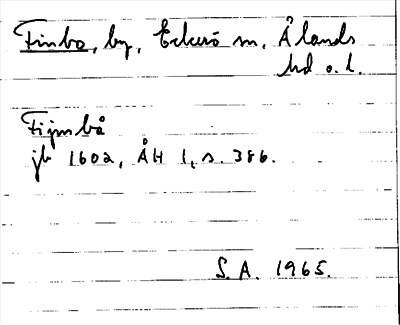 Finbo, by, Eckerö sn, Ålands
hd o. l.
Fijnbå
jb 1602, ÅH 1, s. 386.
S.A. 1965.